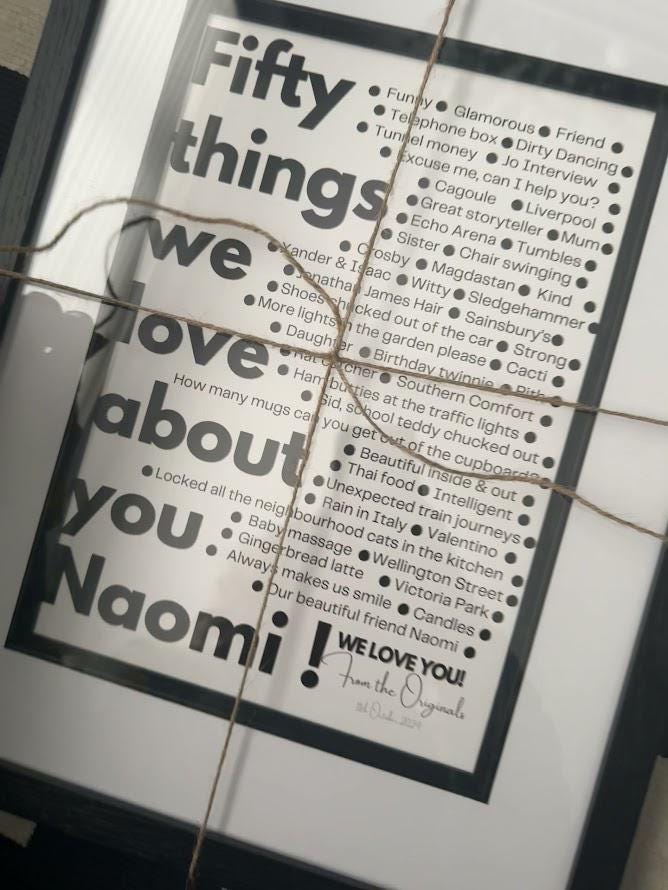 Fifty
things
we
love
about
you
Naomi !
● Funny ● Glamorous ● Friend ●
● Telephone box ● Dirty Dancing ●
● Tunnel money ● Jo Interview ●
● Excuse me, can I help you? ●
● Cagoule ● Liverpool ●
● Great storyteller ● Mum ●
● Echo Arena ● Tumbles ●
● Sister ● Chair swinging ●
● Crosby ● Magdastan ● Kind ●
● Xander & Isaac ● Witty ● Sledgehammer ●
● Jonathan James Hair ● Sainsbury's ●
● Shoes chucked out of the car ● Strong ●
● More lights in the garden please ● Cacti ●
● Daughter ● Birthday twinnie ●
● Southern Comfort ●
● at the traffic lights ●
● Sid, school teddy chucked out ●
How many mugs can you get out of the cupboard?
● Beautiful inside & out ●
● Thai food ● Intelligent ●
● Unexpected train journeys ●
● Rain in Italy ● Valentino ●
● Locked all the neighbourhood cats in the kitchen ●
● Baby massage ● Wellington Street ●
● Gingerbread latte ● Victoria Park ●
● Always makes us smile ● Candles ●
● Our beautiful friend Naomi ●
WE LOVE YOU!
From the Originals
2024